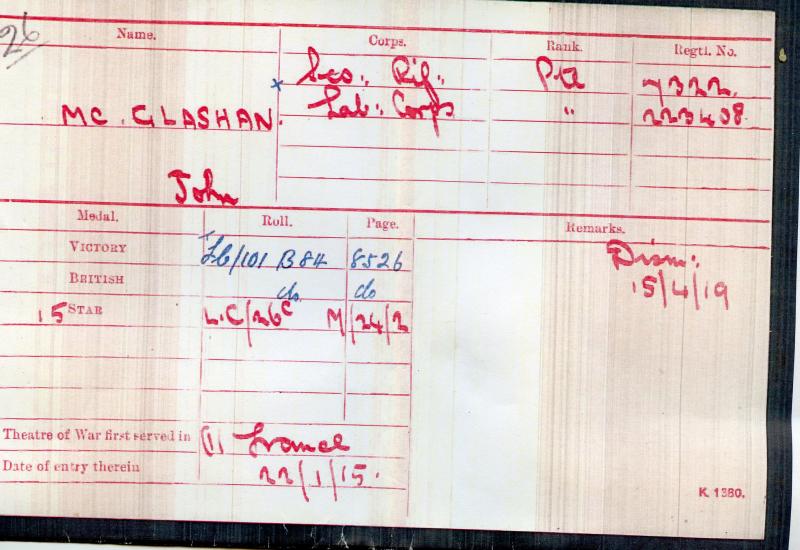 26
Name. Corps. Rank. Regtl. No.
x Sco: Rif: Pte 7322.
MC. GLASHAN. Lab: Corps " 223408
John
Medal. Roll. Page. Remarks.
VICTORY 101 B84 8526 Dism:
BRITISH do do 15/4/19
15 STAR L.C/26C M/24/2
Theatre of War first served in (1) France
Date of entry therein 22/1/15.
K 1380.